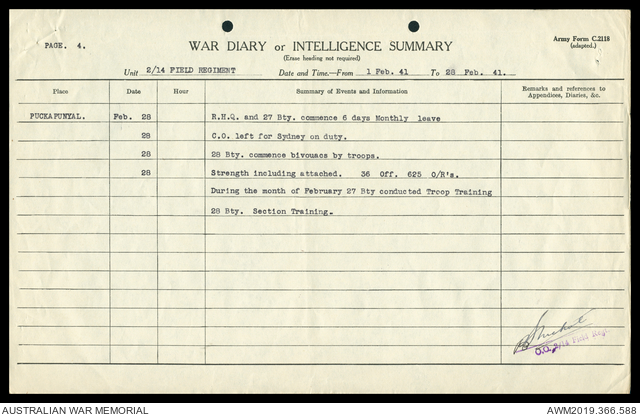 PAGE. 4.
WAR DIARY or INTELLIGENCE SUMMARY
(Erase heading not required)
Army Form C.2118
(adapted.)
Unit 2/14 FIELD REGIMENT Date and Time.—From 1 Feb. 41 To 28 Feb. 41.
Place Date Hour Summary of Events and Information Remarks and references to
Appendices, Diaries, &c.
PUCKAPUNYAL. Feb. 28 R.H.Q. and 27 Bty. commence 6 days Monthly leave
28 C.O. left for Sydney on duty.
28 28 Bty. commence bivouacs by troops.
28 Strength including attached. 36 Off. 625 O/R's.
During the month of February 27 Bty conducted Troop Training
28 Bty. Section Training.
2/14 Field Regt.
AUSTRALIAN WAR MEMORIAL AWM2019.366.588